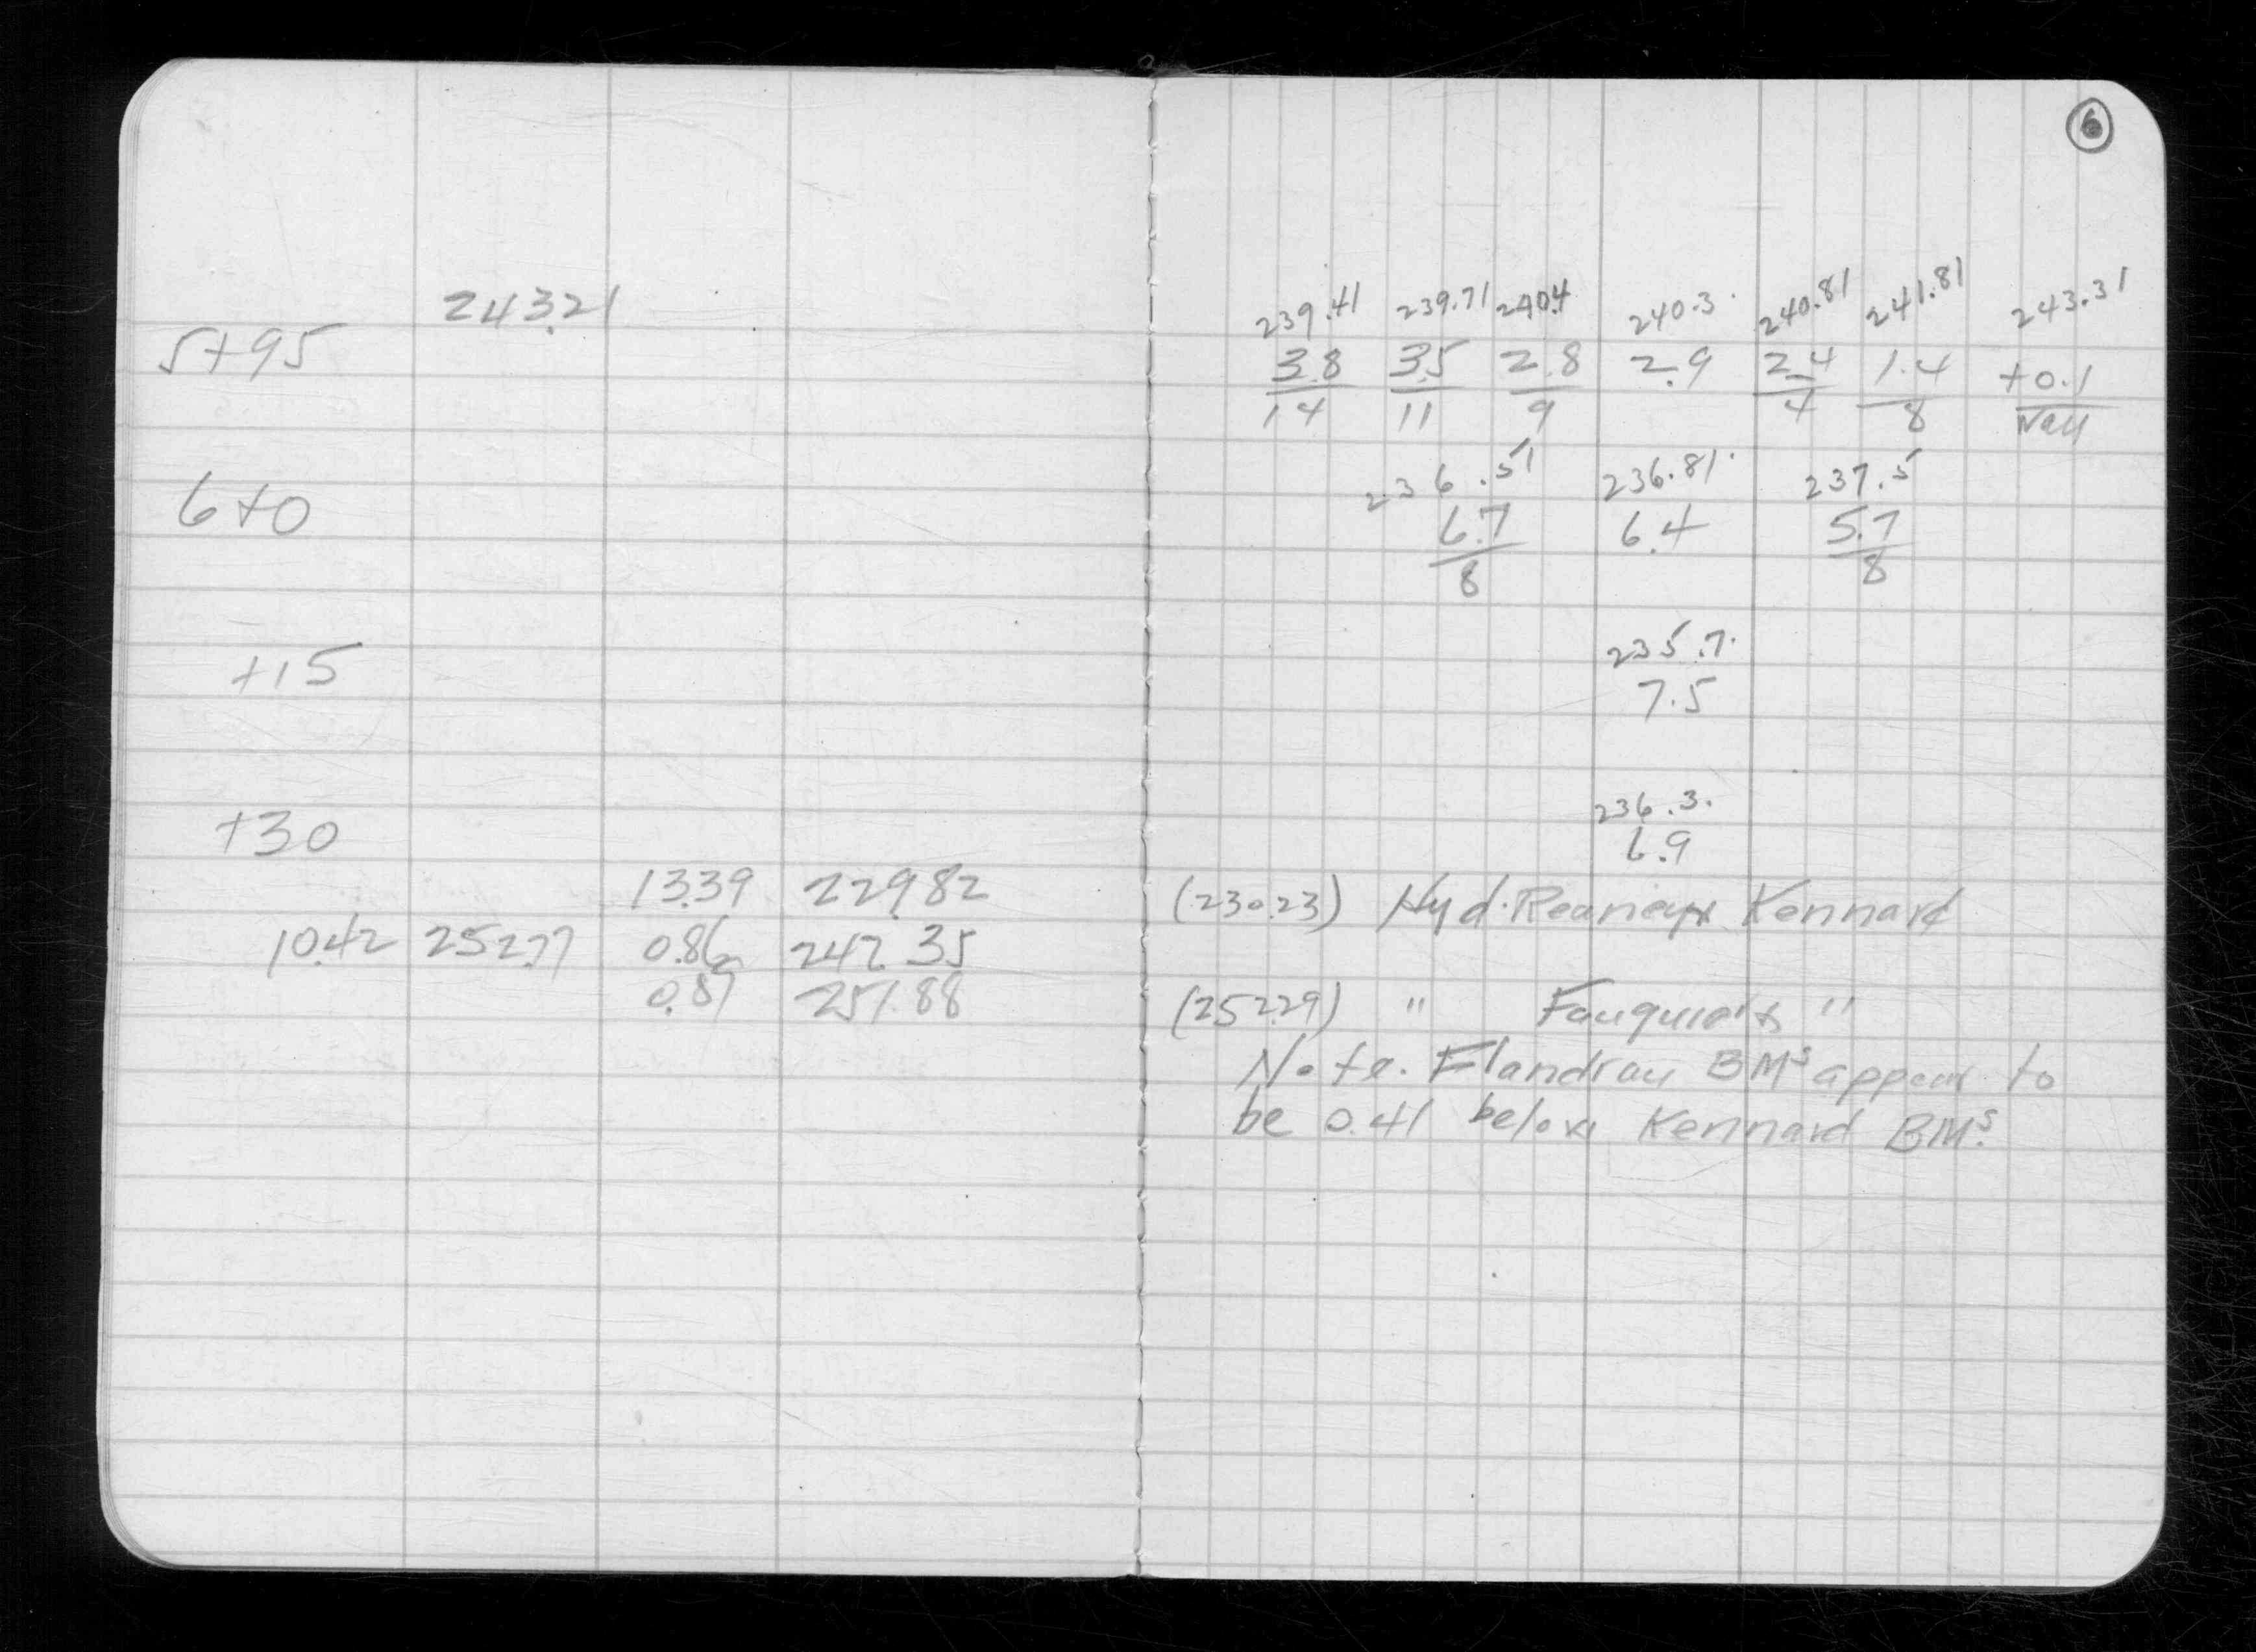 6
243.21
239.41 239.71 240.4 240.3 240.81 241.81 243.31
5+95 3.8 3.5 2.8 2.9 2.4 1.4 +0.1
14 11 9 4 8 Wall
236.51 236.81 237.5
6+0 6.7 6.4 5.7
8 8
235.7
+15 7.5
236.3
+30 6.9
13.39 229.82 (230.23) Hyd. Kennard
10.42 252.77 0.86 242.35
0.87 251.88 (252.29) " "
Note. Flandrau BMs appear to
be 0.41 below Kennard BMs.